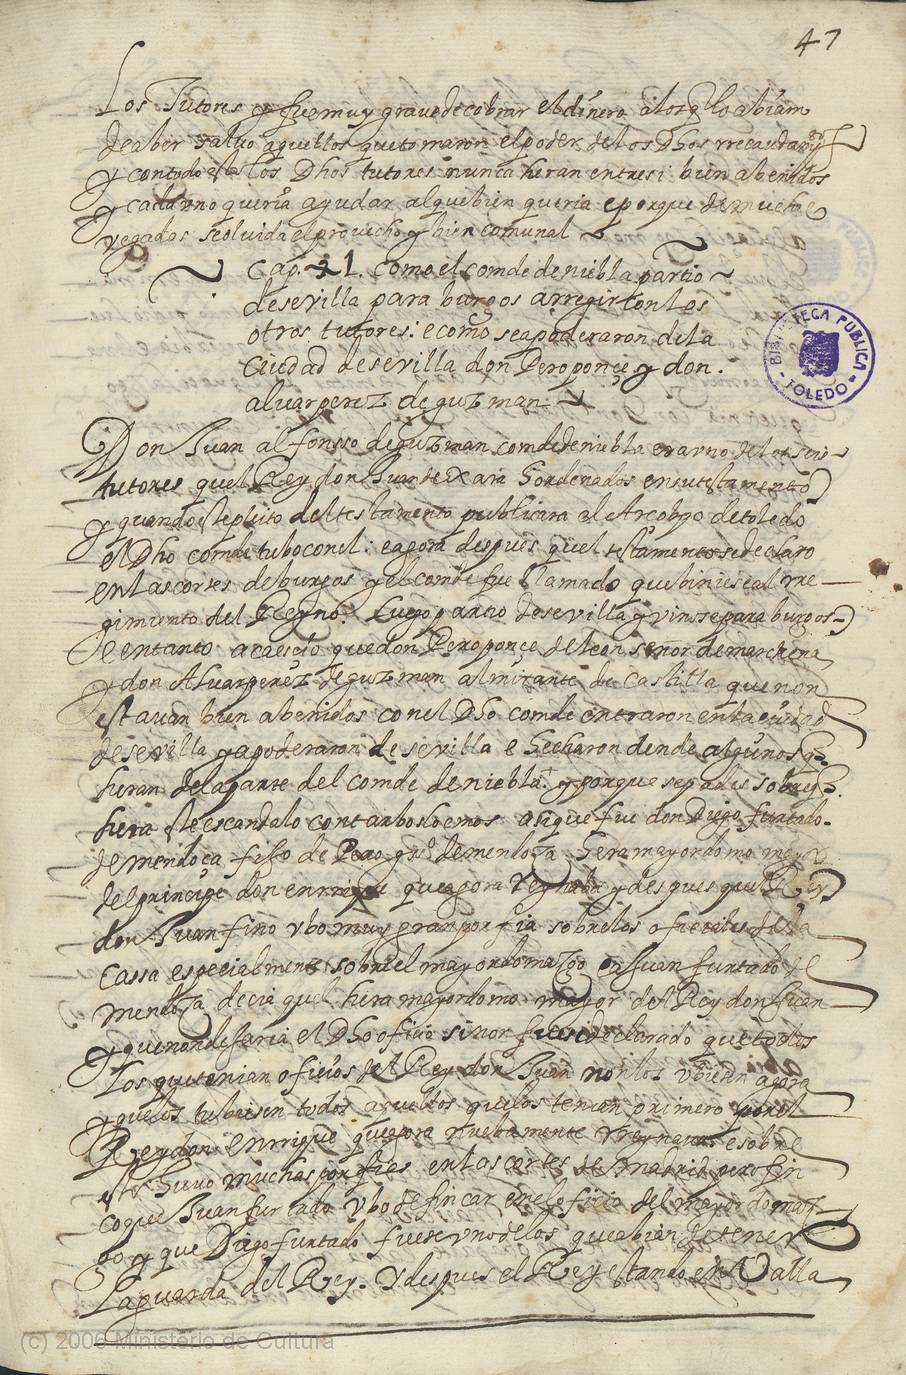 47
Los Tutores y fue muy grave de cobrar el dinero a los q̃ lo abian
de aber salvo aquellos que tomaron el poder de los Dhos rrecaudadores
y con todo esto los Dhos tutores nunca heran entresi bien abenidos
y cada vno queria ayudar al que bien queria e porque de muchas
vegadas se oluida el provecho y bien comunal
Cap. 41. Como el comde de niebla partio
de sevilla para burgos a rregir con los
otros tutores: e como se apoderaron de la
Ciudad de sevilla don Pero ponçe y don
aluar perez de guzman.
Don Juan alfonsso de guzman comde de niebla era vno de los seis
tutores quel Rey don Juan dexara hordenados en su testamento
y quando este pleito del testamento publicara el Arçobpo de toledo
el Dho comde tubo con el: e agora despues quel testamento se declaro
en las cortes de burgos y el comde fue llamado que biniese al rre
gimiento del Reyno. luego partio de sevilla y vinose para burgos
e entanto acaescio que don Pero ponçe de leon señor de marchena
y don Aluar perez de guzman almirante de castilla que non
estavan bien abenidos con el Dho comde entraron en la ciudad
de sevilla y apoderaron de sevilla e hecharon dende algunos q̃
fueran de la parte del comde de niebla. y porque sepades sobre q̃
fuera este escandalo contarbos lo emos asi que fue don Diego furtado
de mendoça fijo de Pero gs. de mendoza hera mayordomo mayor
del prinçipe don enrrique que agora rreynaba y despues quel Rey
don Juan fino vbo muy gran porfia sobre los ofiçiales de la
Cassa espeçialmente sobre el mayordomazgo en Juan furtado de
mendoza decia quel hera mayordomo mayor del Rey don Juan
y que non desaria el Dho ofiçio sinon fuese declarado que todos
los que tenian ofiçios del Rey don Juan non los vbiesen agora
y que los tubiesen todos aquellos que los tenian primero por el
Rey don Enrrique que agora nuebamente rreynara. e sobre
esto huvo muchas porfias en las cortes de madrid pero fin
co que Juan furtado vbo de fincar en el ofiçio del mayordomaz
go y que Diego furtado fuese vno de los que abian de tener
La guarda del Rey. Y despues el Rey estando en Valla
BIBLIOTECA PUBLICA
TOLEDO
(c) 2006 Ministerio de Cultura